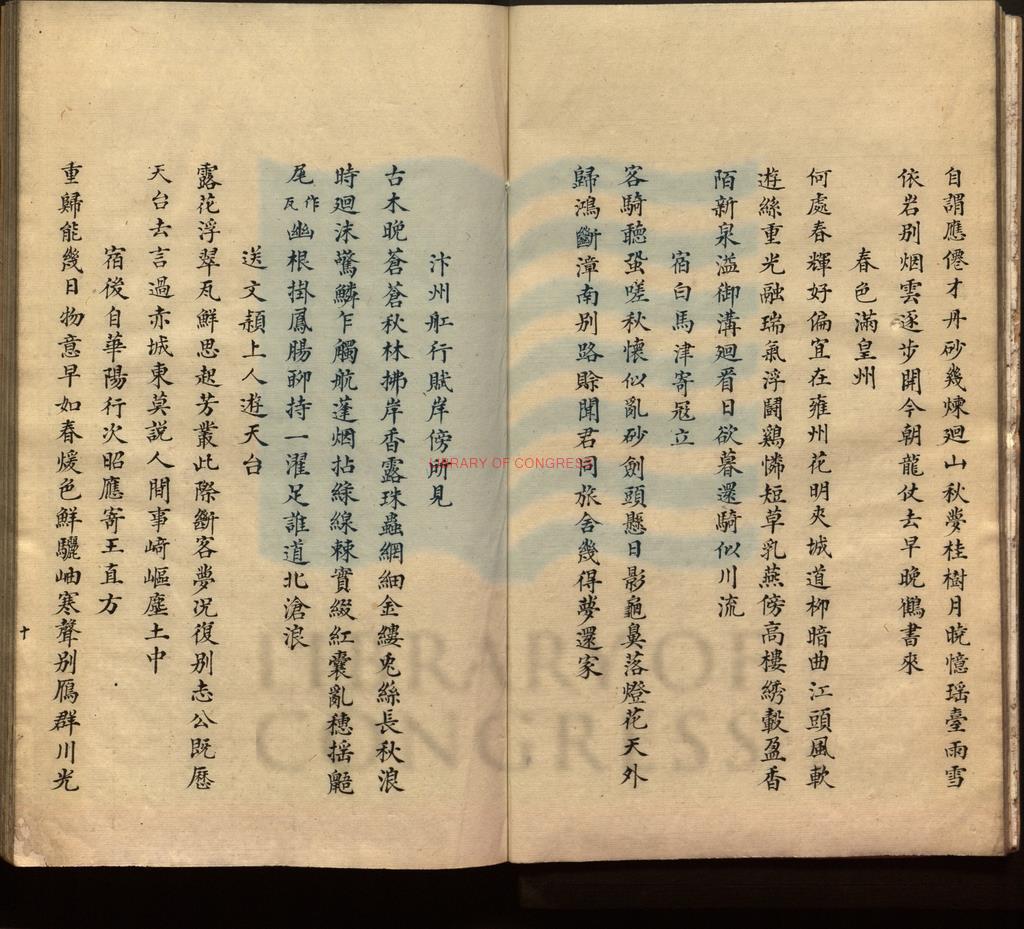 自謂應僊才丹砂幾煉廻山秋夢桂樹月曉憶瑶臺雨雪
依岩别烟雲逐步開今朝龍仗去早晩鶴書來
春色滿皇州
何處春輝好偏宜在雍州花明夾城道柳暗曲江頭風軟
遊絲重光融瑞氣浮鬪鷄憐短草乳燕傍高樓綉轂盈香
陌新泉溢御溝廻看日欲暮還騎似川流
宿白馬津寄冦立
客騎聽蛩嗟秋懷似亂砂劍頭懸日影龜鼻落燈花天外
歸鴻斷漳南别路賒聞君同旅舍幾得夢還家
汴州舡行賦岸傍所見
古木晩蒼蒼秋林拂岸香露珠蟲網細金縷兎絲長秋浪
時廻沫驚鱗乍觸航蓬烟拈綠線棘實綴紅囊亂穗摇鼯
尾作瓦幽根掛鳳腸聊持一濯足誰道北滄浪
送文頴上人遊天台
露花浮翠瓦鮮思起芳叢此際斷客夢况復别志公既歷
天台去言過赤城東莫説人間事崎嶇塵土中
宿後自華陽行次昭應寄王直方
重歸能幾日物意早如春煖色鮮驪岫寒聲别鴈群川光
十
LIBRARY OF CONGRESS
LIBRARY OF
CONGRESS